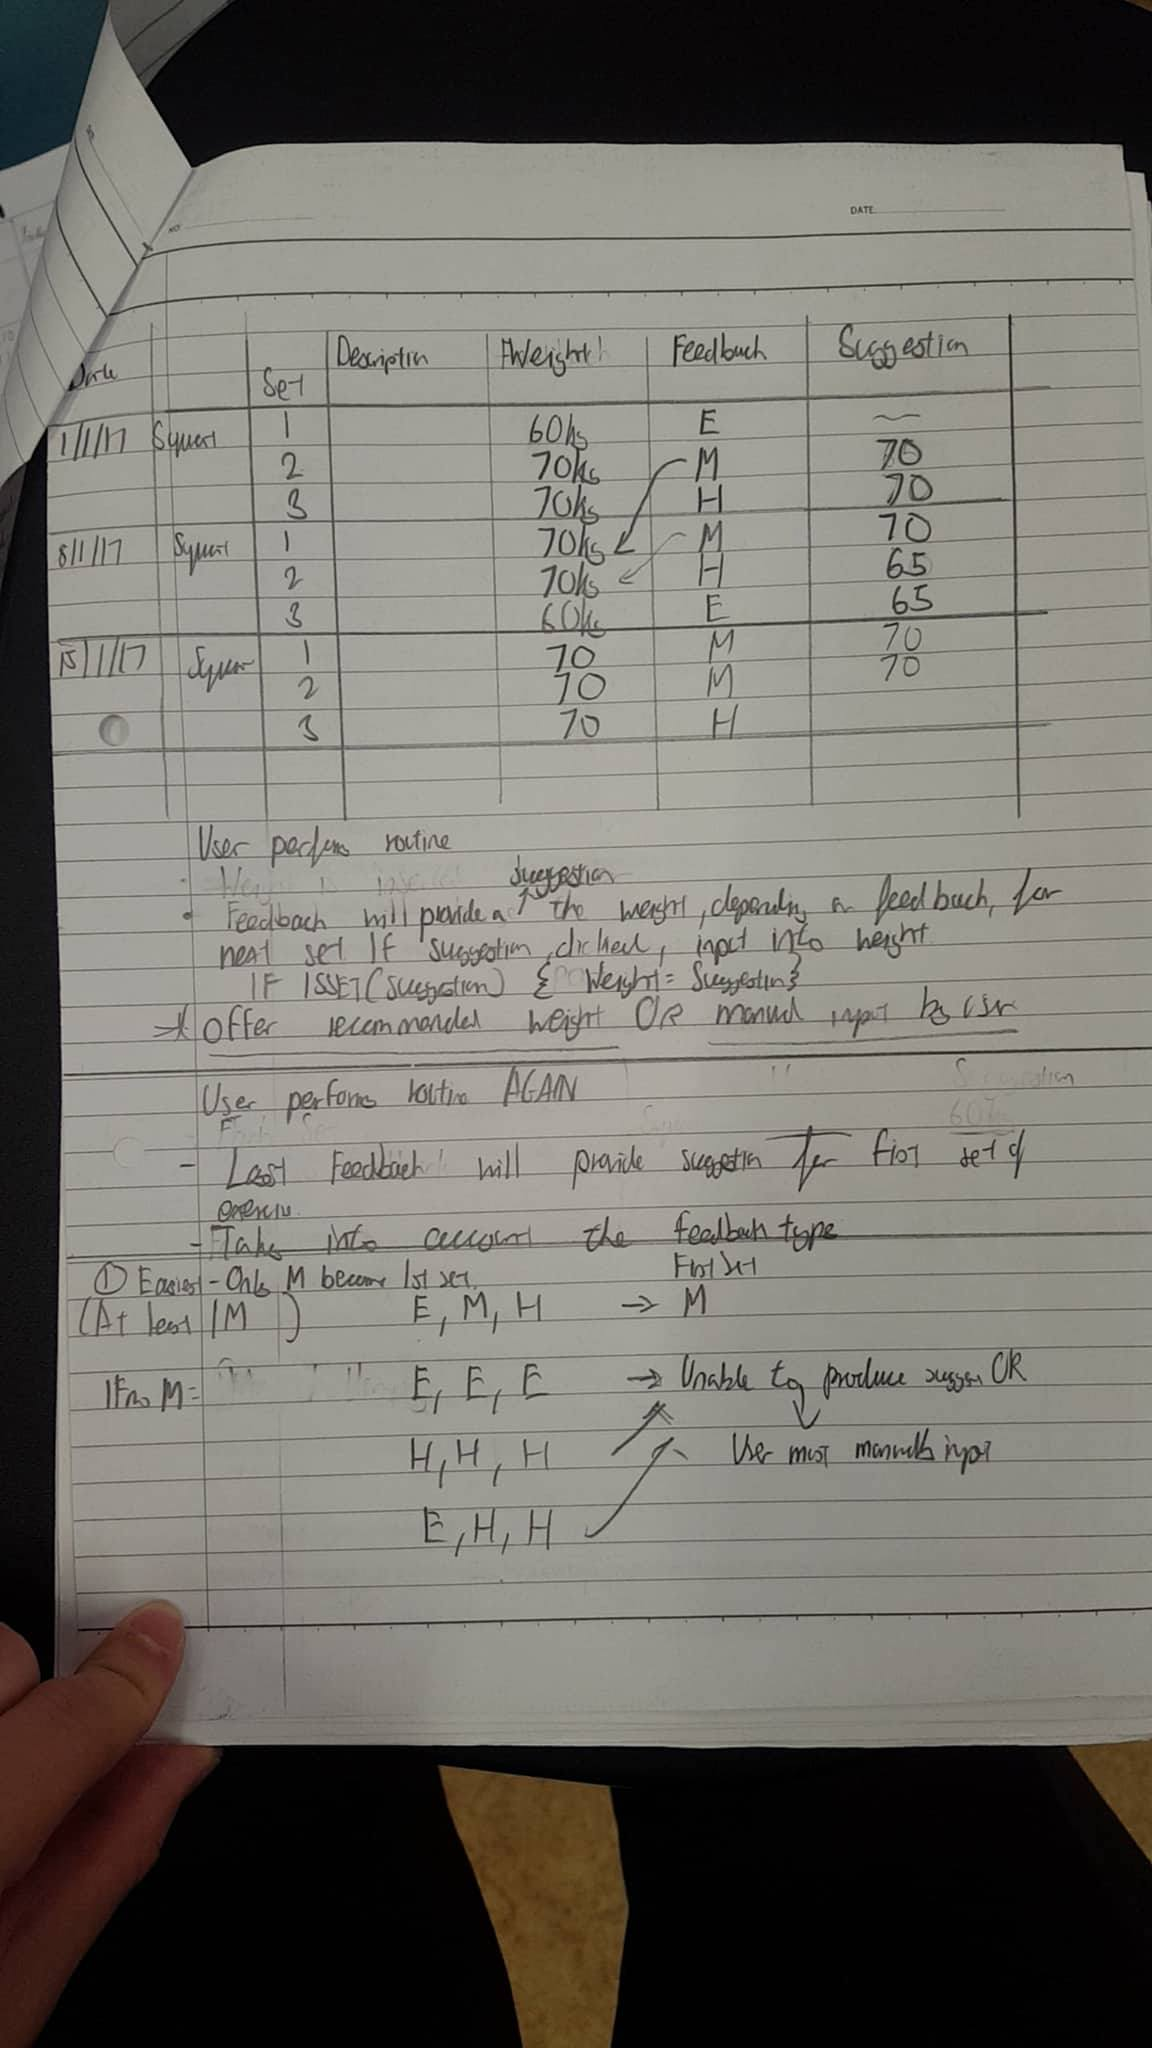 NO
DATE
Date Set Description Weight Feedback Suggestion
1/1/17 Squat 1 60kg E ~
2 70kg M 70
3 70kg H 70
8/1/17 Squat 1 70kg M 70
2 70kg H 65
3 60kg E 65
15/1/17 Squat 1 70 M 70
2 70 M 70
3 70 H
User performs routine
suggestion
• Feedback will provide a ↑ the weight, depending on feedback, for
next set If suggestion clicked, input into weight
IF ISSET(Suggestion) { Weight = Suggestion}
* Offer recommended weight OR manual input by user
User performs routine AGAIN
- Last Feedback will provide suggestion for first set of
exercise.
- Take into account the feedback type
① Easiest - Only M become 1st set. First Set
(At least 1M ) E, M, H → M
IF no M = E, E, E → Unable to produce OR
H, H, H User must manually input
E, H, H